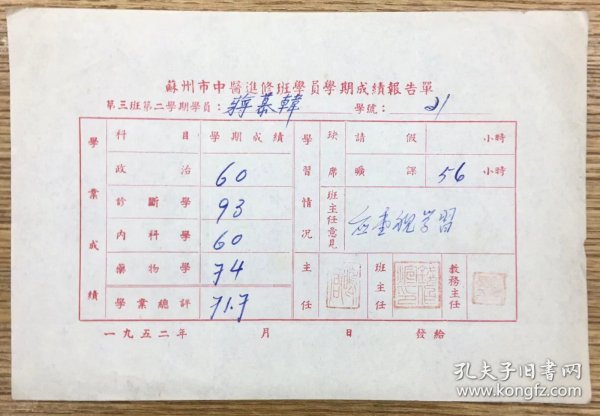 蘇州市中醫進修班學員學期成績報告單
第三班第二學期學員：蔣慕韓 學號：21
學業成績 科目 學期成績 學習情況 缺席 請假 小時
政治 60 曠課 56 小時
診斷學 93 班主任意見 应重視学習
內科學 60
藥物學 74 主任 班主任 教務主任
學業總評 71.7
一九五二年 月 日 發給
孔夫子旧书网
www.kongfz.com